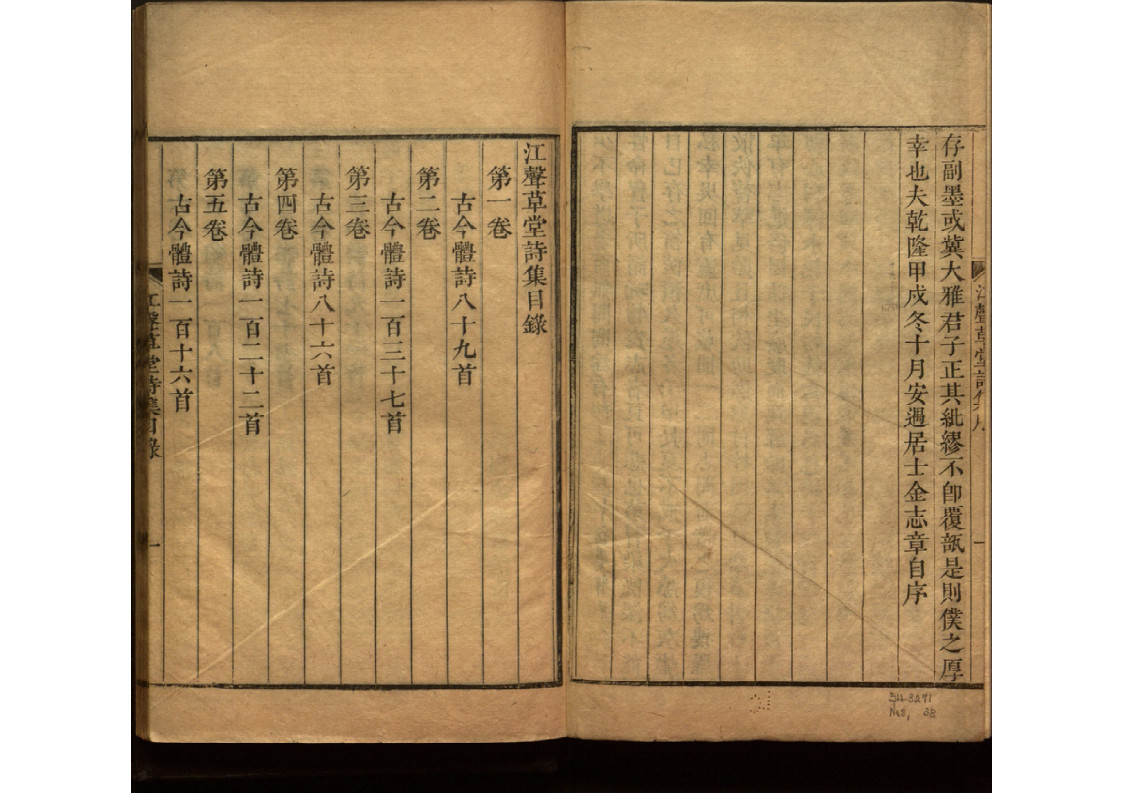 存副墨或冀大雅君子正其紕繆不卽覆瓿是則僕之厚
幸也夫乾隆甲戌冬十月安過居士金志章自序
江聲草堂詩集目錄
第一卷
古今體詩八十九首
第二卷
古今體詩一百三十七首
第三卷
古今體詩八十六首
第四卷
古今體詩一百二十二首
第五卷
古今體詩一百十六首
江聲草堂詩集目錄
一